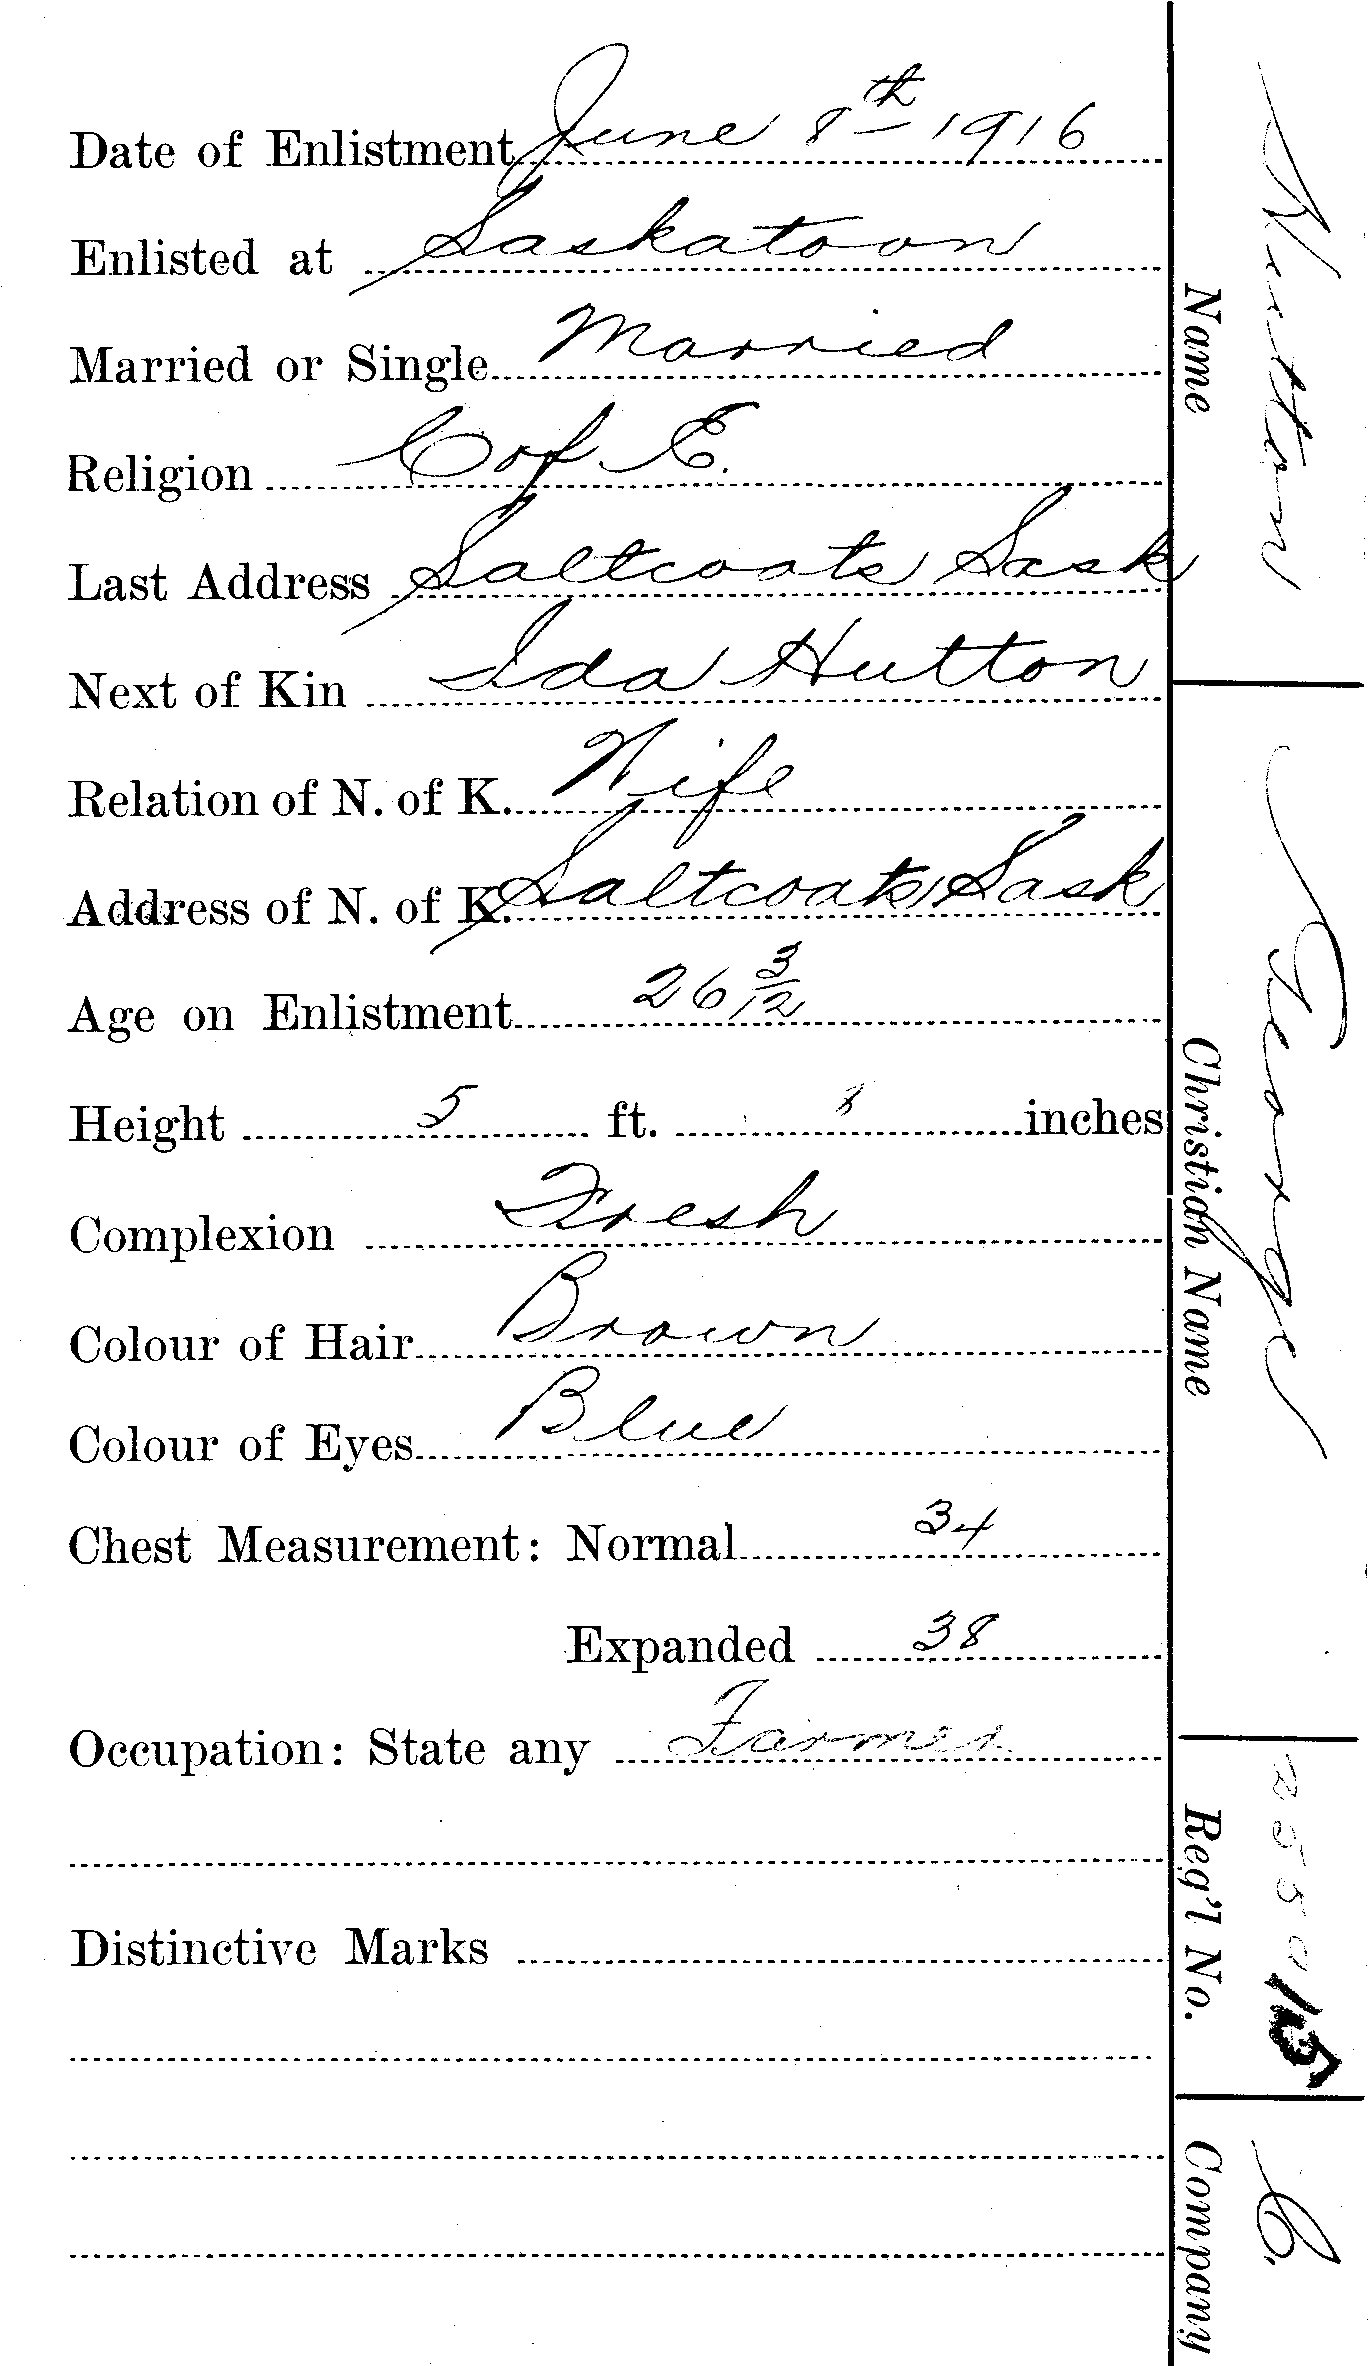 Date of Enlistment June 8th 1916
Enlisted at Saskatoon
Married or Single Married
Religion C of E.
Last Address Saltcoats Sask
Next of Kin Ida Hutton
Relation of N. of K. Wife
Address of N. of K. Saltcoats Sask
Age on Enlistment 26 3/12
Height 5 ft. 8 inches
Complexion Fresh
Colour of Hair Brown
Colour of Eyes Blue
Chest Measurement: Normal 34
Expanded 38
Occupation: State any Farmer
Distinctive Marks
Name Hutton
Christian Name George
Reg'l No. 255015
Company C.